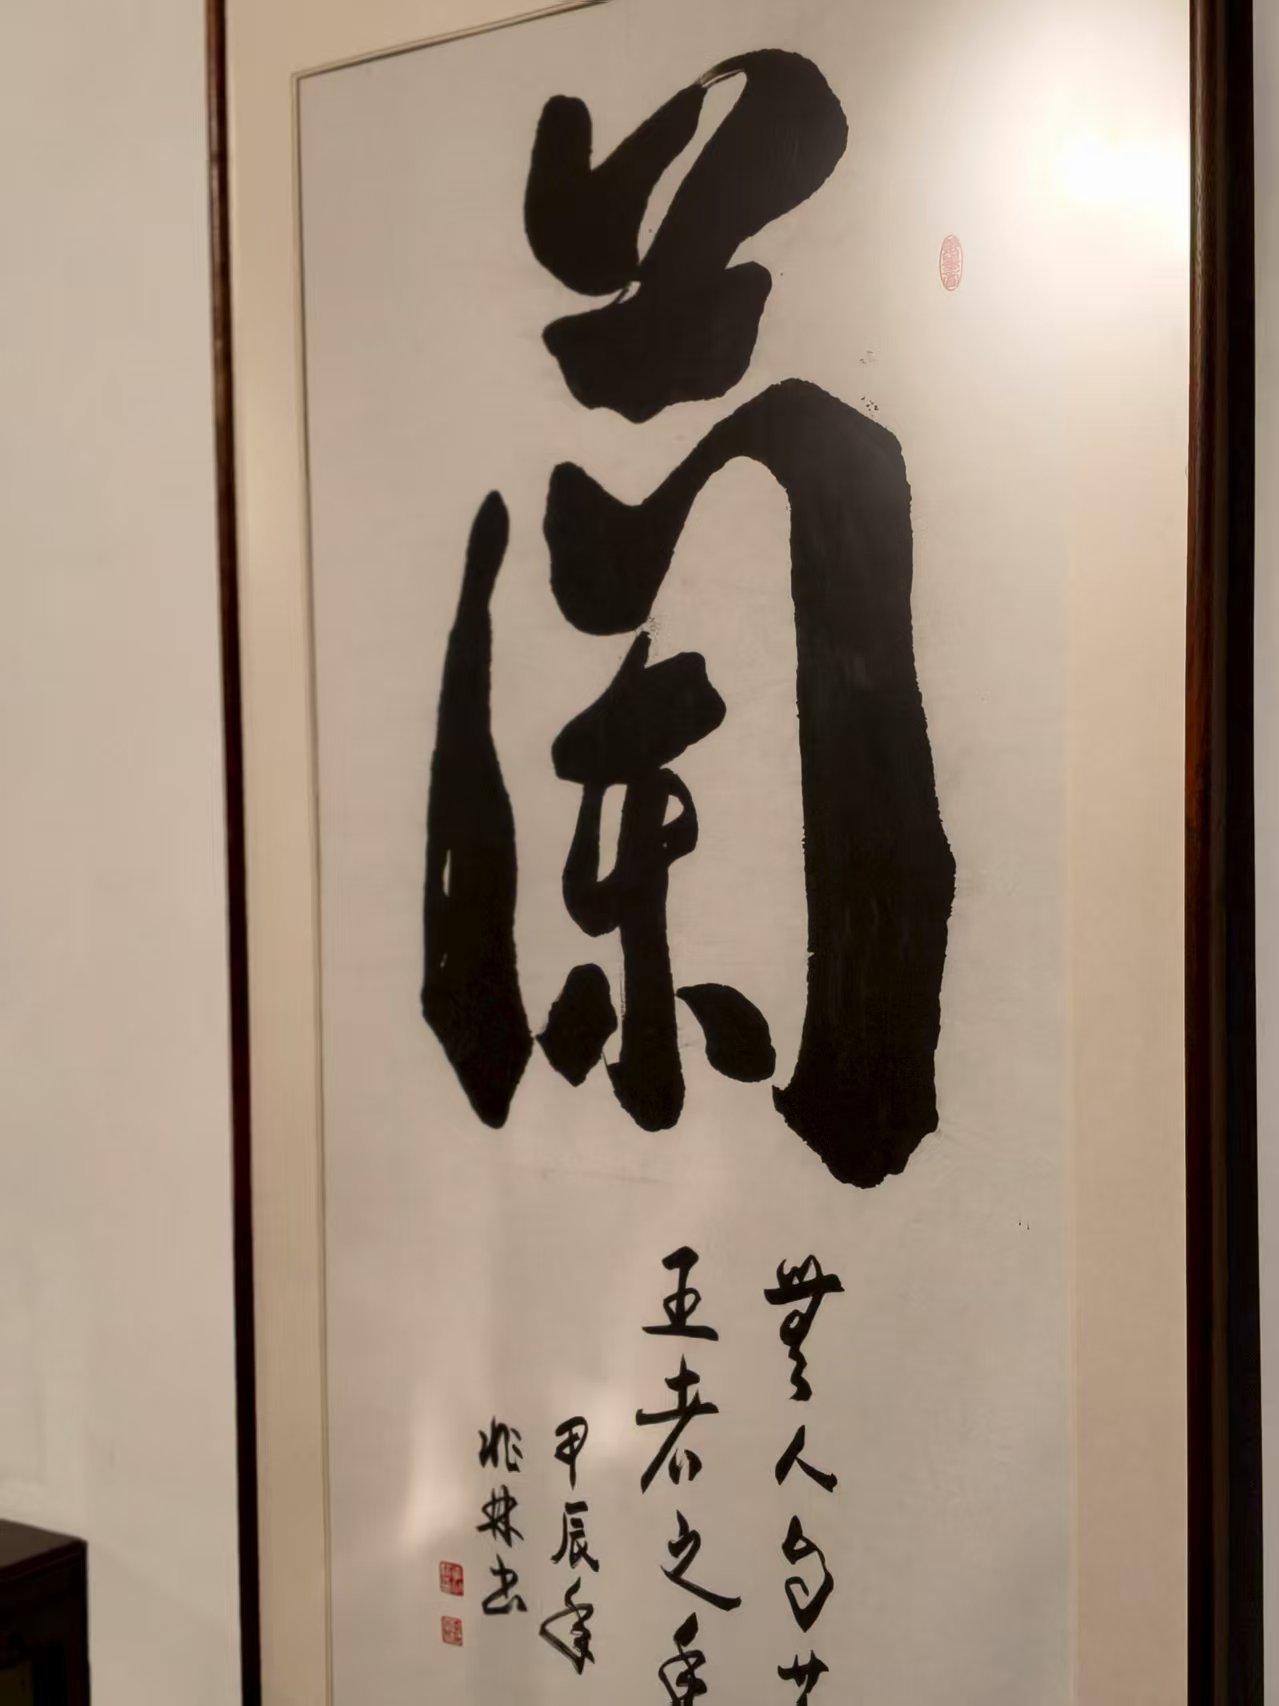 蘭
無人自芳
王者之香
甲辰年
兆林书